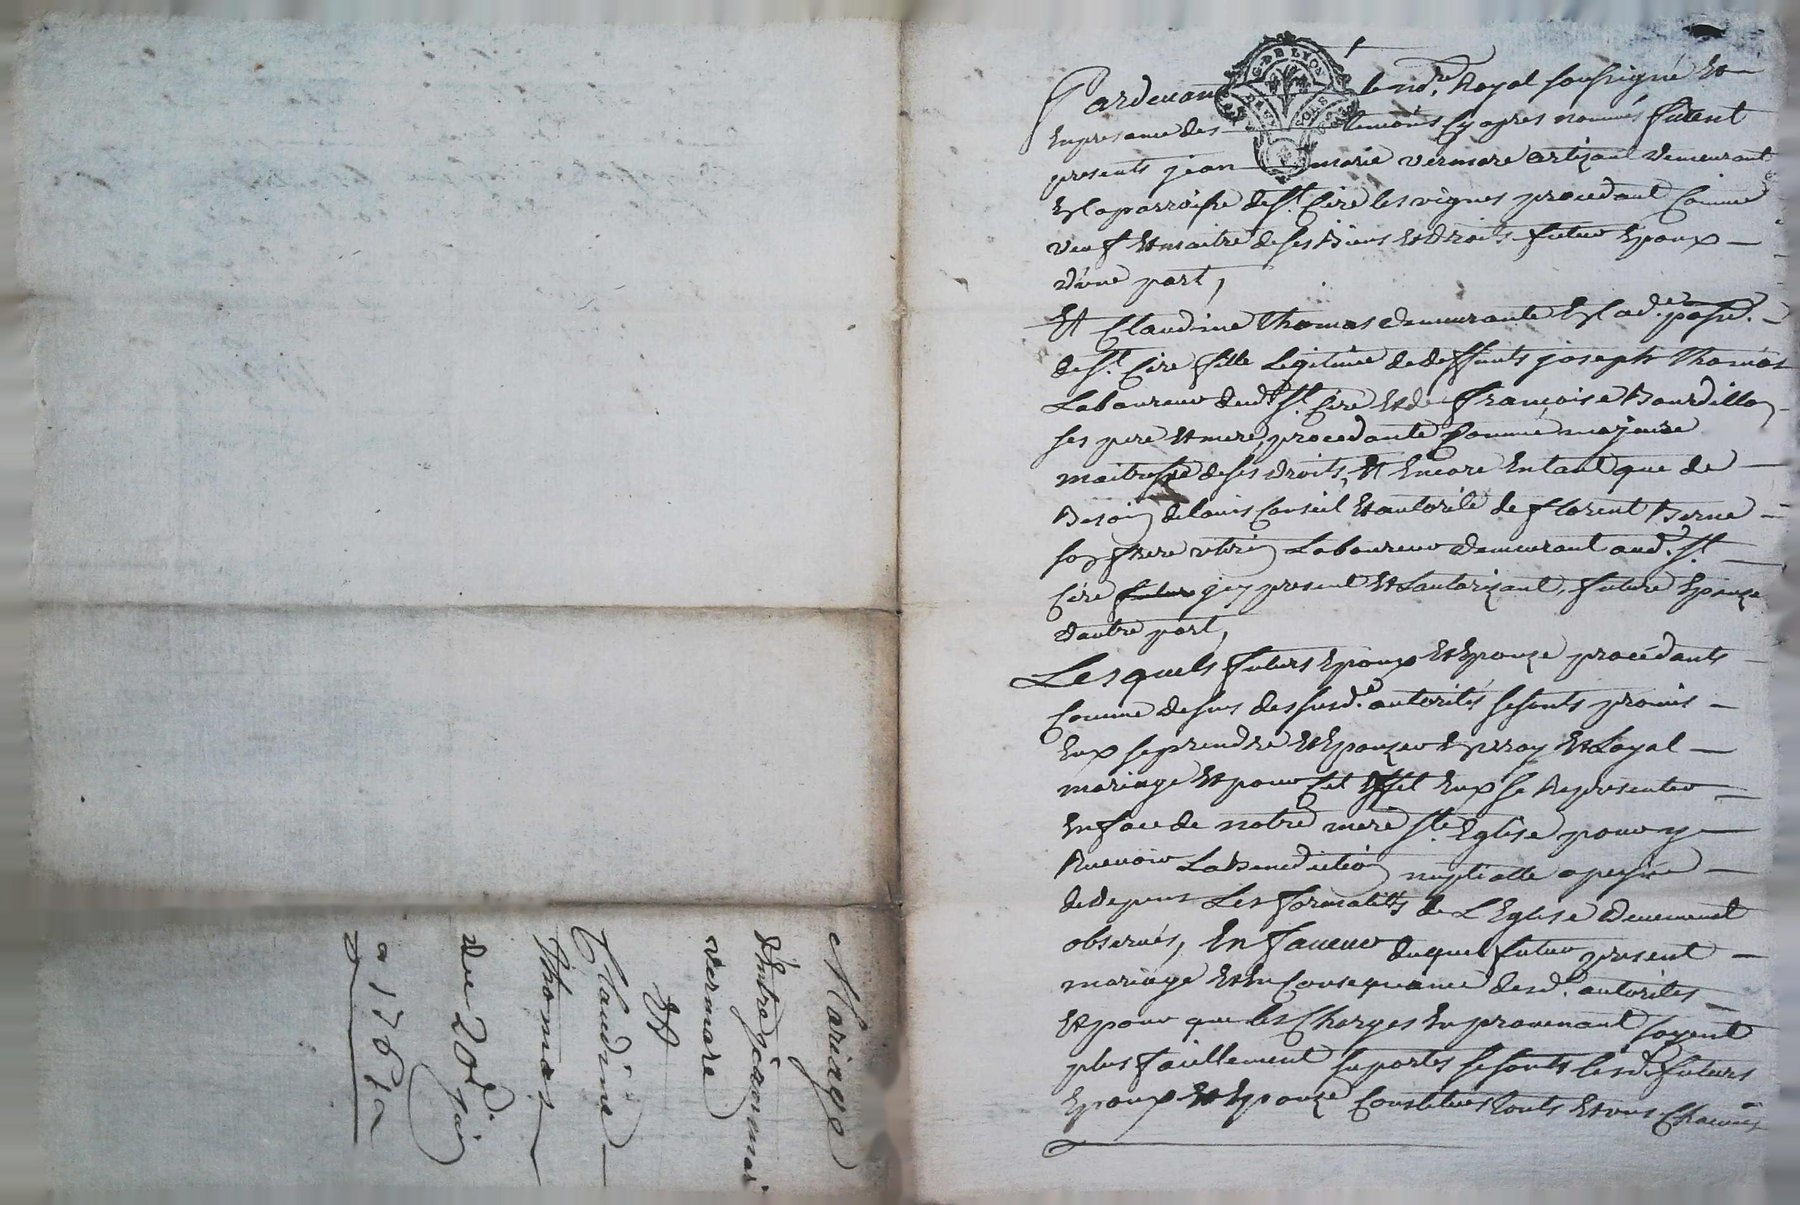 Pardevant le nre. Royal soussigné Et
En presance des temoins cy apres nommés furent
presents jean marie vermare artizant demeurant
En la parroisse de St. Cire les vignes procedant Comme
veuf Et maitre de ses Biens Et droits futur Epoux
d'une part,
Et Claudine Thomas demeurante En lad. e parse.
de St. Cire fille Legitime de deffunts joseph Thomas
Laboureur dud. St. Cire Et de françoise Bourdillon
ses pere Et mere, procedante Comme majeure
maitresse de ses droits, Et Encore En tant que de
Besoin de lavis Conseil Et autorité de florent Berne
son frere uterin Laboureur demeurant aud. St.
Cire futur icy present Et Lautorizant, future Epouze
dautre part,
Lesquels futurs Epoux Et Epouze procédants
Comme desus des susd. es autorités se sonts promis
Eux se prendre Et Epouzer En vray Et Loyal
mariage Et pour Cet Effet Eux se Representer
En face de notre mere Ste. Eglise pour y
Recevoir La Benediction nuptialle a peine
de depens Les formalités de L'Eglise duement
observés, En faveur duquel futur present
mariage Et En Consequance desd. autorités
Et pour que les Charges En provenant soyent
plus facillement suportés se sonts lesd. futurs
Epoux Et Epouze Constitues touts Et uns Chacuns
Mariage
d'Entre jean mari
vermare
Et
Claudine
Thomas
du 20e. juin
a 1767
G. DE LYON
DEUX SOLS